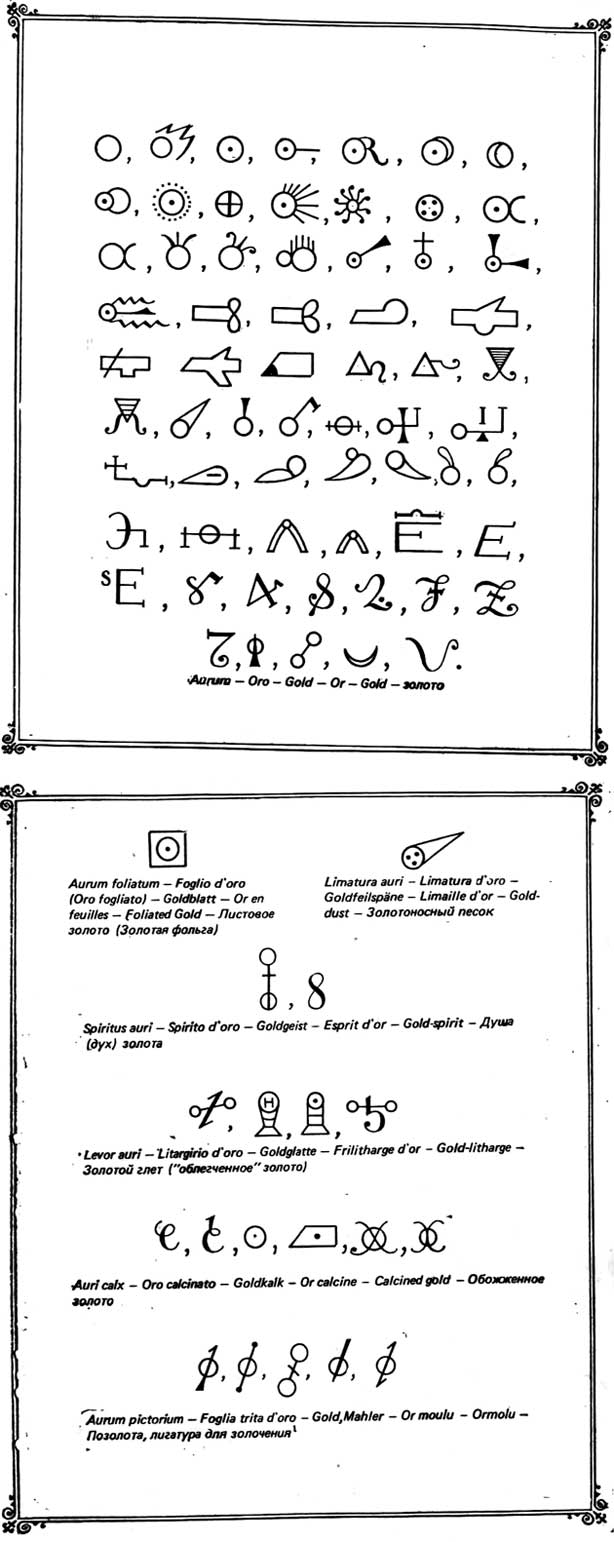 Aurum — Oro — Gold — Or — Gold — золото
Aurum foliatum — Foglio d'oro
(Oro fogliato) — Goldblatt — Or en
feuilles — Foliated Gold — Листовое
золото (Золотая фольга)
Limatura auri — Limatura d'oro —
Goldfeilspäne — Limaille d'or — Gold-
dust — Золотоносный песок
Spiritus auri — Spirito d'oro — Goldgeist — Esprit d'or — Gold-spirit — Душа
(дух) золота
Levor auri — Litargirio d'oro — Goldglatte — Frilitharge d'or — Gold-litharge —
Золотой глет ("облегченное" золото)
Auri calx — Oro calcinato — Goldkalk — Or calcine — Calcined gold — Обожженное
золото
Aurum pictorium — Foglia trita d'oro — Gold,Mahler — Or moulu — Ormolu —
Позолота, лигатура для золочения¹